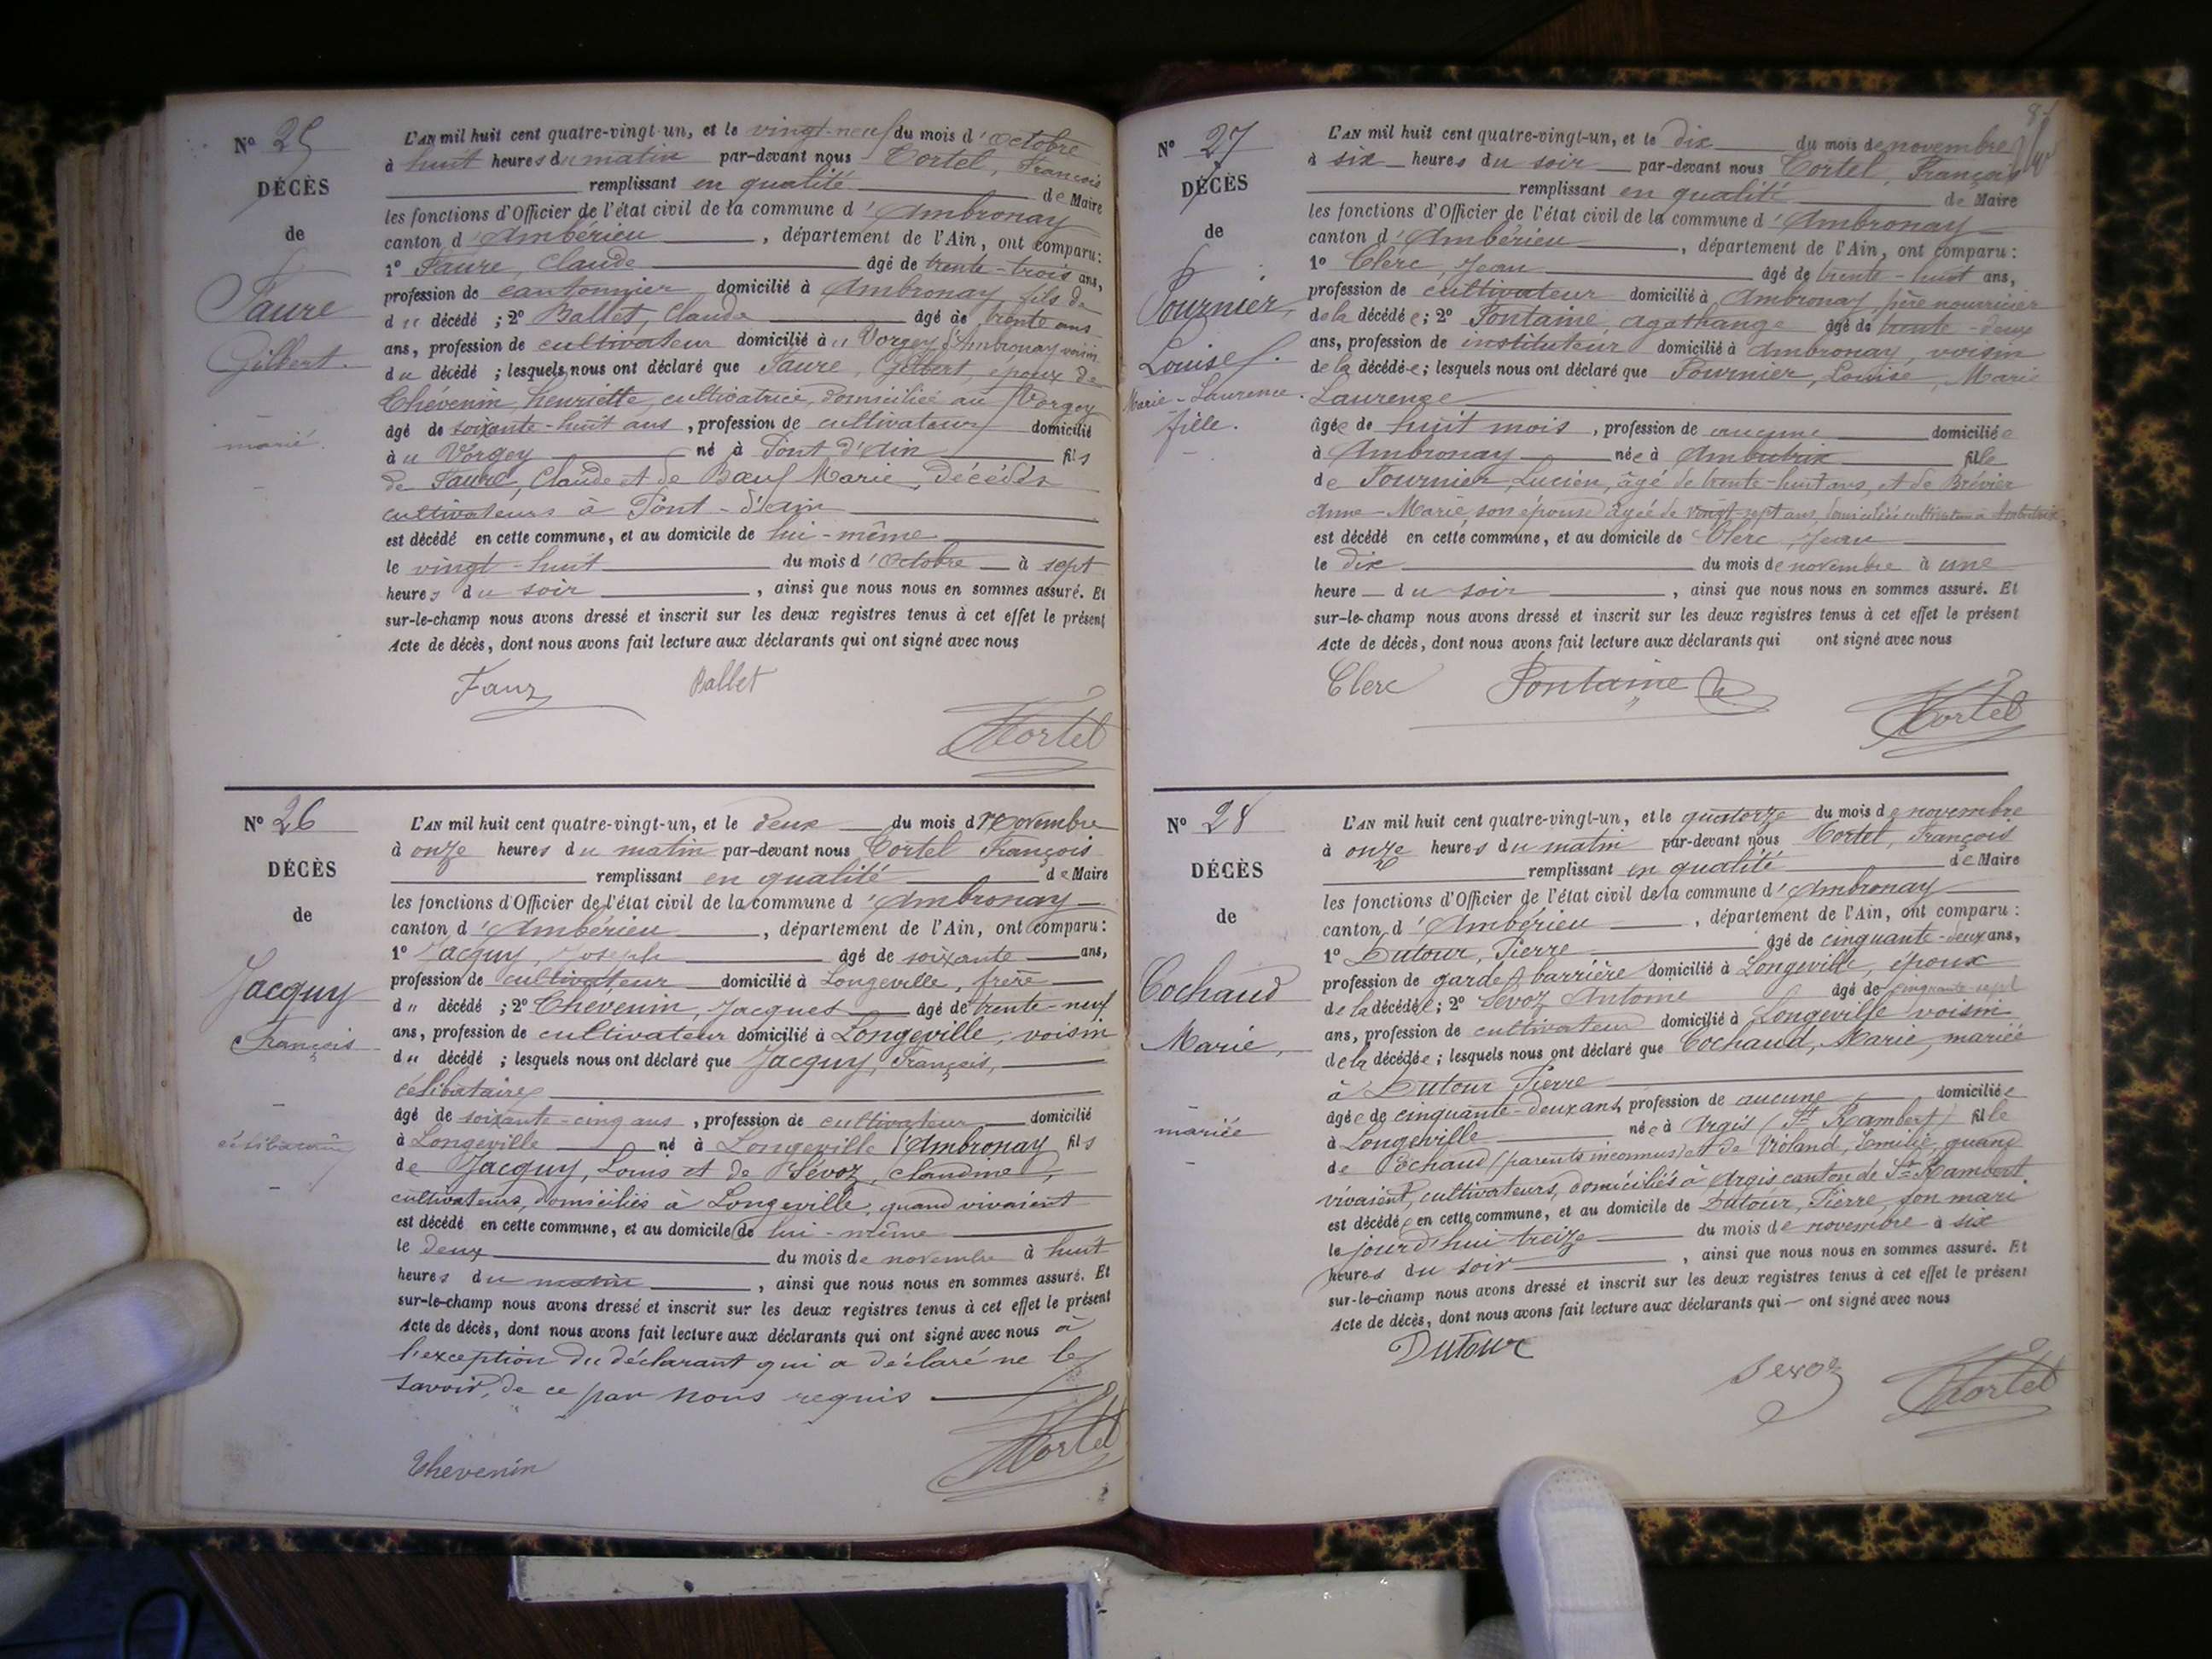 N° 25
DÉCÈS
de
Faure
Gilbert.
marié.
L'AN mil huit cent quatre-vingt-un, et le vingt-neuf du mois d'octobre
à huit heures du matin par-devant nous Tortel, François
remplissant en qualité de Maire
les fonctions d'Officier de l'état civil de la commune d'Ambronay
canton d'Ambérieu, département de l'Ain, ont comparu:
1° Faure, Claude âgé de trente-trois ans,
profession de cantonnier domicilié à Ambronay, fils de
du décédé ; 2° Ballet, Claude âgé de trente ans
ans, profession de cultivateur domicilié à u Vorgey d'Ambronay voisin
du décédé ; lesquels nous ont déclaré que Faure, Gilbert, époux de
Thevenin, henriette, cultivatrice, domiciliée au Vorgey
âgé de soixante-huit ans, profession de cultivateur domicilié
à u Vorgey né à Pont d'Ain fils
de Faure, Claude et de Bœuf Marie, décédés
cultivateurs à Pont-d'Ain
est décédé en cette commune, et au domicile de lui-même
le vingt-huit du mois d'Octobre à sept
heures du soir, ainsi que nous nous en sommes assuré. Et
sur-le-champ nous avons dressé et inscrit sur les deux registres tenus à cet effet le présent
Acte de décès, dont nous avons fait lecture aux déclarants qui ont signé avec nous
Ballet
Tortel
N° 26
DÉCÈS
de
Jacquy
François
célibataire
L'AN mil huit cent quatre-vingt-un, et le deux du mois d Novembre
à onze heures du matin par-devant nous Tortel François
remplissant en qualité de Maire
les fonctions d'Officier de l'état civil de la commune d'Ambronay
canton d'Ambérieu, département de l'Ain, ont comparu:
1° Jacquy, Joseph âgé de soixante ans,
profession de cultivateur domicilié à Longeville, frère
du décédé ; 2° Thevenin, Jacques âgé de trente-neuf
ans, profession de cultivateur domicilié à Longeville, voisin
du décédé ; lesquels nous ont déclaré que Jacquy, François,
célibataire
âgé de soixante-cinq ans, profession de cultivateur domicilié
à Longeville né à Longeville d'Ambronay fils
de Jacquy, Louis et de Sévoz, Claudine,
cultivateurs, domiciliés à Longeville, quand vivaient
est décédé en cette commune, et au domicile de lui-même
le deux du mois de novembre à huit
heures du matin, ainsi que nous nous en sommes assuré. Et
sur-le-champ nous avons dressé et inscrit sur les deux registres tenus à cet effet le présent
Acte de décès, dont nous avons fait lecture aux déclarants qui ont signé avec nous à
l'exception du déclarant qui a déclaré ne le
savoir, de ce par nous requis
Thevenin
Tortel
N° 27
DÉCÈS
de
Fournier,
Louise
Marie-Laurence.
fille.
L'AN mil huit cent quatre-vingt-un, et le dix du mois de novembre
à six heures du soir par-devant nous Tortel, François
remplissant en qualité de Maire
les fonctions d'Officier de l'état civil de la commune d'Ambronay
canton d'Ambérieu, département de l'Ain, ont comparu:
1° Clerc, Jean âgé de trente-huit ans,
profession de cultivateur domicilié à Ambronay père nourricier
de la décédée; 2° Fontaine, agathange âgé de trente-deux
ans, profession de instituteur domicilié à Ambronay, voisin
de la décédée; lesquels nous ont déclaré que Fournier, Louise, Marie
Laurence
âgée de huit mois, profession de aucune domiciliée
à Ambronay née à Ambutrix fille
de Fournier, Lucien, âgé de trente-huit ans, et de Brévier
Anne-Marie, son épouse âgée de vingt-sept ans, domiciliés cultivateurs à Ambutrix,
est décédé en cette commune, et au domicile de Clerc, Jean
le dix du mois de novembre à une
heure du soir, ainsi que nous nous en sommes assuré. Et
sur-le-champ nous avons dressé et inscrit sur les deux registres tenus à cet effet le présent
Acte de décès, dont nous avons fait lecture aux déclarants qui ont signé avec nous
Clerc Fontaine
Tortel
N° 28
DÉCÈS
de
Cochaud
Marie,
mariée
L'AN mil huit cent quatre-vingt-un, et le quatorze du mois de novembre
à onze heures du matin par-devant nous Tortel, François
remplissant en qualité de Maire
les fonctions d'Officier de l'état civil de la commune d'Ambronay
canton d'Ambérieu, département de l'Ain, ont comparu:
1° Dutour, Pierre âgé de cinquante-deux ans,
profession de garde barrière domicilié à Longeville, époux
de la décédée; 2° Sévoz Antoine âgé de cinquante-sept
ans, profession de cultivateur domicilié à Longeville voisin
de la décédée; lesquels nous ont déclaré que Cochaud, Marie, mariée
à Dutour Pierre
âgée de cinquante-deux ans, profession de aucune domiciliée
à Longeville née à Argis (St Rambert) fille
de Cochaud (parents inconnus) et de Violand, Emilie, quand
vivaient, cultivateurs, domiciliés à Argis canton de St Rambert.
est décédée en cette commune, et au domicile de Dutour, Pierre, son mari
le jourd'hui treize du mois de novembre à six
heures du soir, ainsi que nous nous en sommes assuré. Et
sur-le-champ nous avons dressé et inscrit sur les deux registres tenus à cet effet le présent
Acte de décès, dont nous avons fait lecture aux déclarants qui ont signé avec nous
Dutour
Sevoz
Tortel